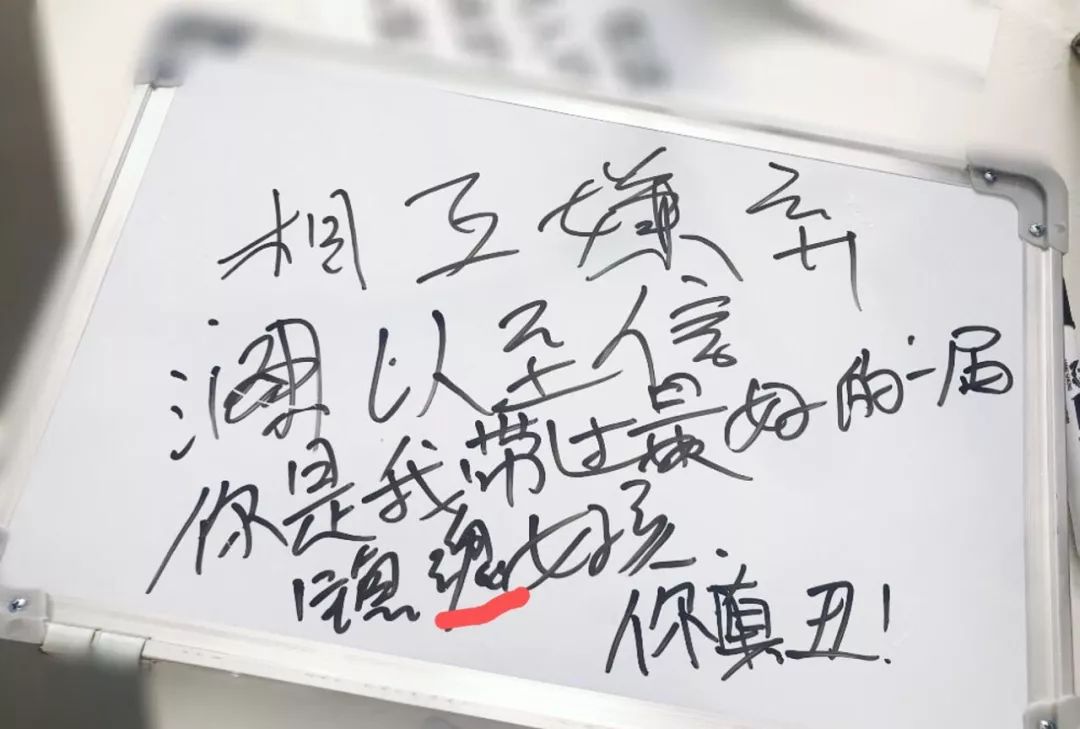 相互嫌弃
深以至信
你是我带过最好的一届
嘻魂女孩
你真丑!